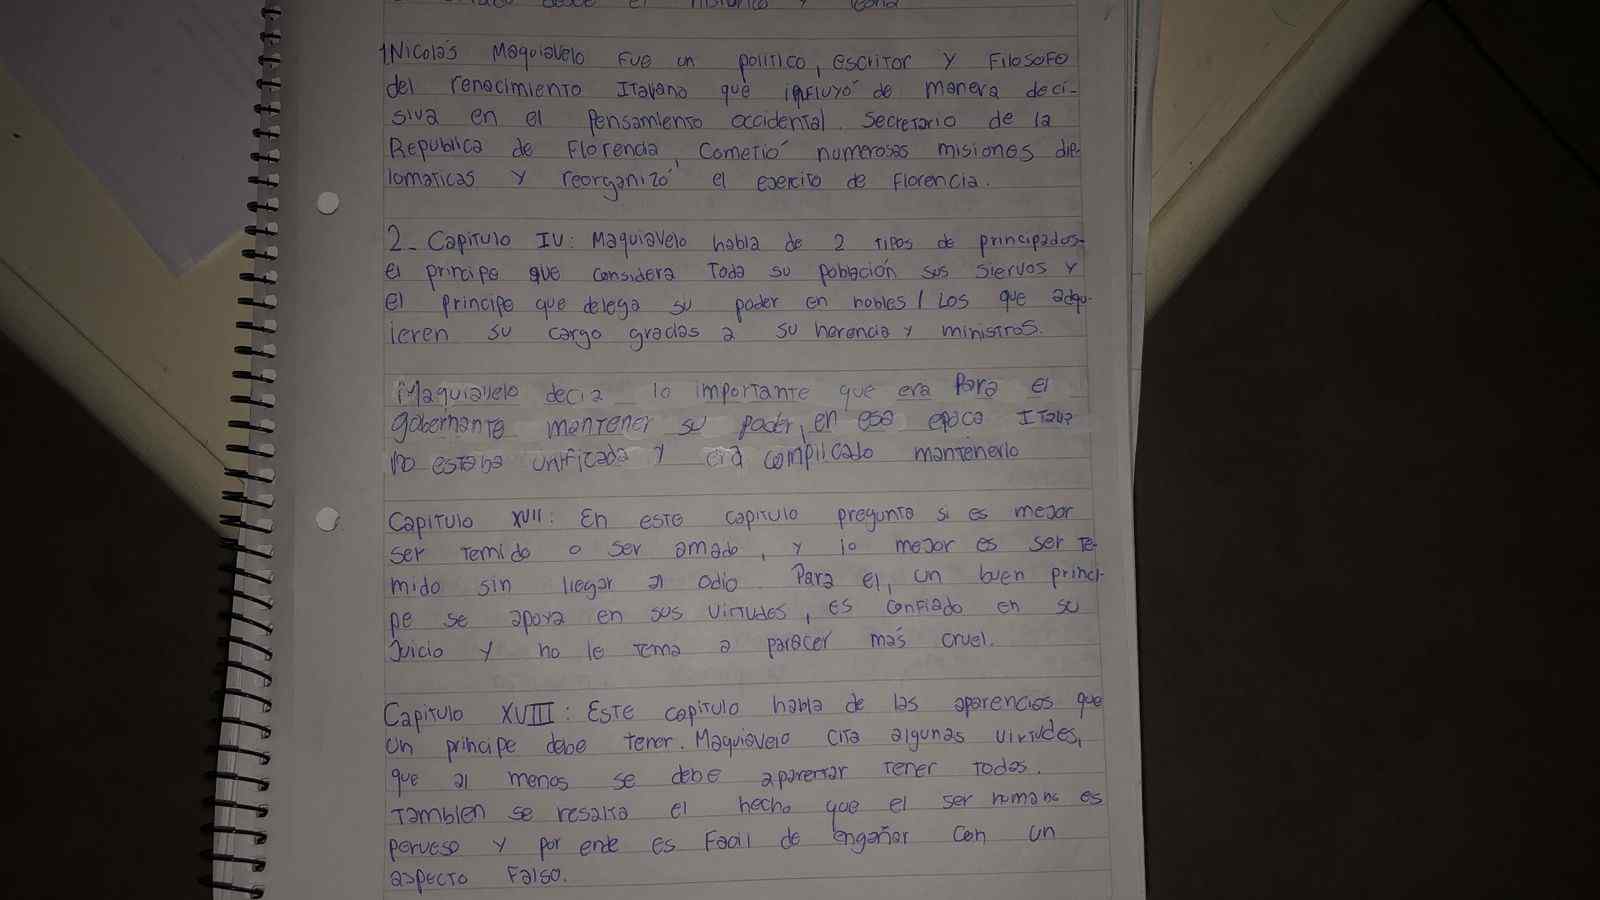 desde el historico y
1. Nicolás Maquiavelo fue un politico, escritor y filosofo
del renacimiento Italiano que influyó de manera deci-
siva en el pensamiento occidental. Secretario de la
Republica de Florencia, cometió numerosas misiones dip-
lomaticas y reorganizó el ejercito de Florencia.
2- Capitulo IV: Maquiavelo habla de 2 tipos de principados-
el principe que considera toda su población sus siervos y
el principe que delega su poder en nobles / Los que adqu-
ieren su cargo gracias a su herencia y ministros.
Maquiavelo decia lo importante que era para el
gobernante mantener su poder, en esa epoca Italia
no estaba unificada y era complicado mantenerlo
Capitulo XVII: En este capitulo pregunta si es mejor
ser temido o ser amado, y lo mejor es ser te-
mido sin llegar al odio. Para el, un buen princi-
pe se apoya en sus virtudes, es confiado en su
juicio y no le tema a parecer más cruel.
Capitulo XVIII: Este capitulo habla de las aparencias que
un principe debe tener. Maquiavelo cita algunas virtudes,
que al menos se debe aparentar tener todas.
Tambien se resalta el hecho que el ser humano es
perveso y por ende es facil de engañar con un
aspecto falso.